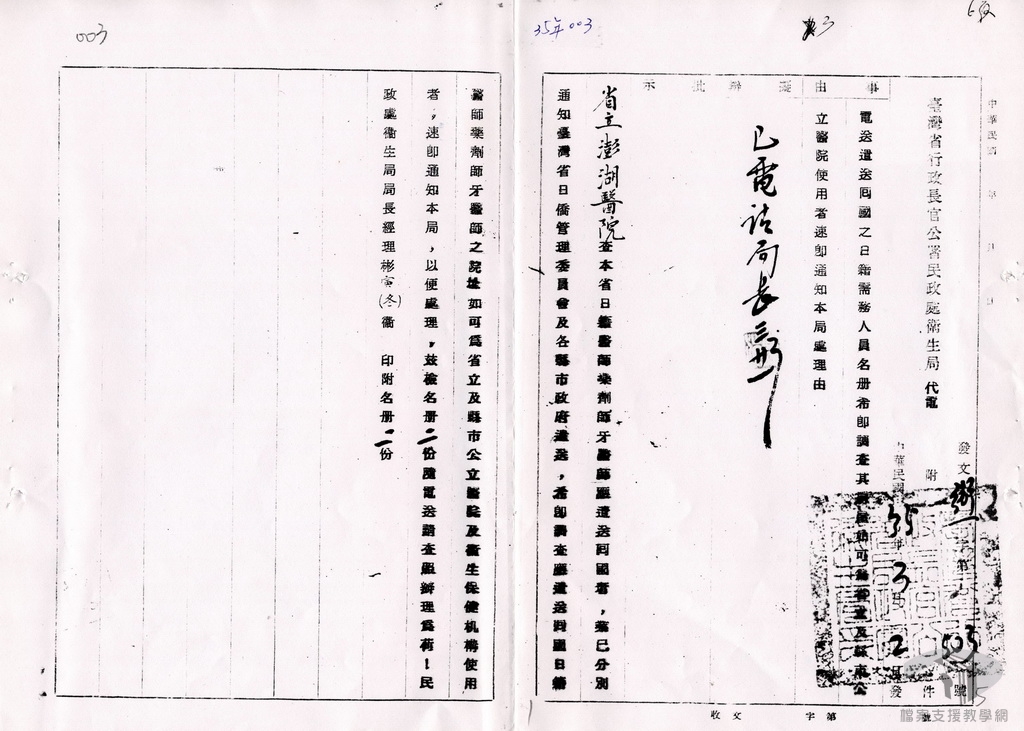 003
35年003
中華民國 年 月 日
臺灣省行政長官公署民政處衛生局 代電
發文 衛一字第 503 號
附 件
中華民國 35 年 3 月 2 日發
事由 擬辦 批示
電送遣送回國之日籍需務人員名册希即調查其 可為省立及縣市公
立醫院使用者速即通知本局處理由
已電請局長
省立澎湖醫院查本省日籍醫師藥劑師牙醫師應遣送回國者,業已分別
通知臺灣省日僑管理委員會及各縣市政府遣送,希即調查應遣送回國日籍
收文 字第 號
醫師藥劑師牙醫師之院址如可為省立及縣市公立醫院及衛生保健机構使用
者,速即通知本局,以便處理,茲檢名册二份隨電送請查照辦理為荷!民
政處衛生局局長經理彬寅(冬)衞 印附名册二份
檔案支援教學網